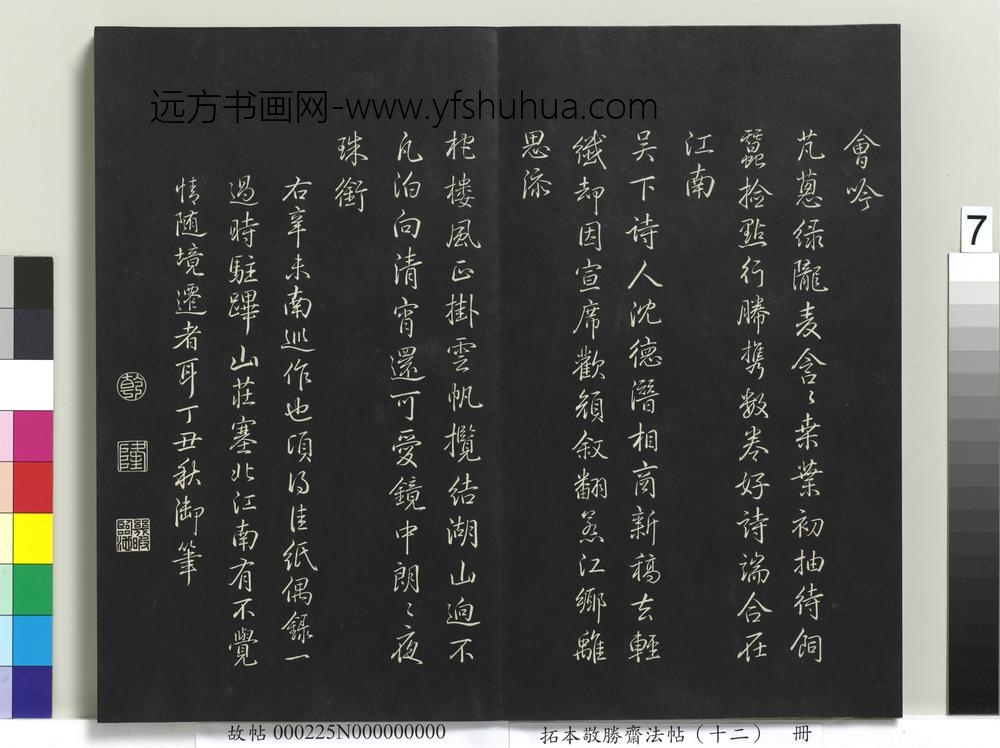 远方书画网-www.yfshuhua.com
會吟
芃蔥绿隴麦含〻桒葉初抽待飼
蠶拾點行縢携数卷好诗端合在
江南
吴下诗人沈德潛相商新稿去輕
纖却因宣席歡頒叙翻羗江鄉離
思添
柁樓風正掛雲帆攬结湖山逈不
凡泊向清宵還可愛鏡中朗〻夜
珠銜
右辛未南巡作也頃得佳纸偶錄一
過時駐蹕山莊塞北江南有不覺
情随境遷者耳丁丑秋御筆
乾
隆
7
故帖 000225N000000000
拓本敬勝齋法帖（十二） 冊